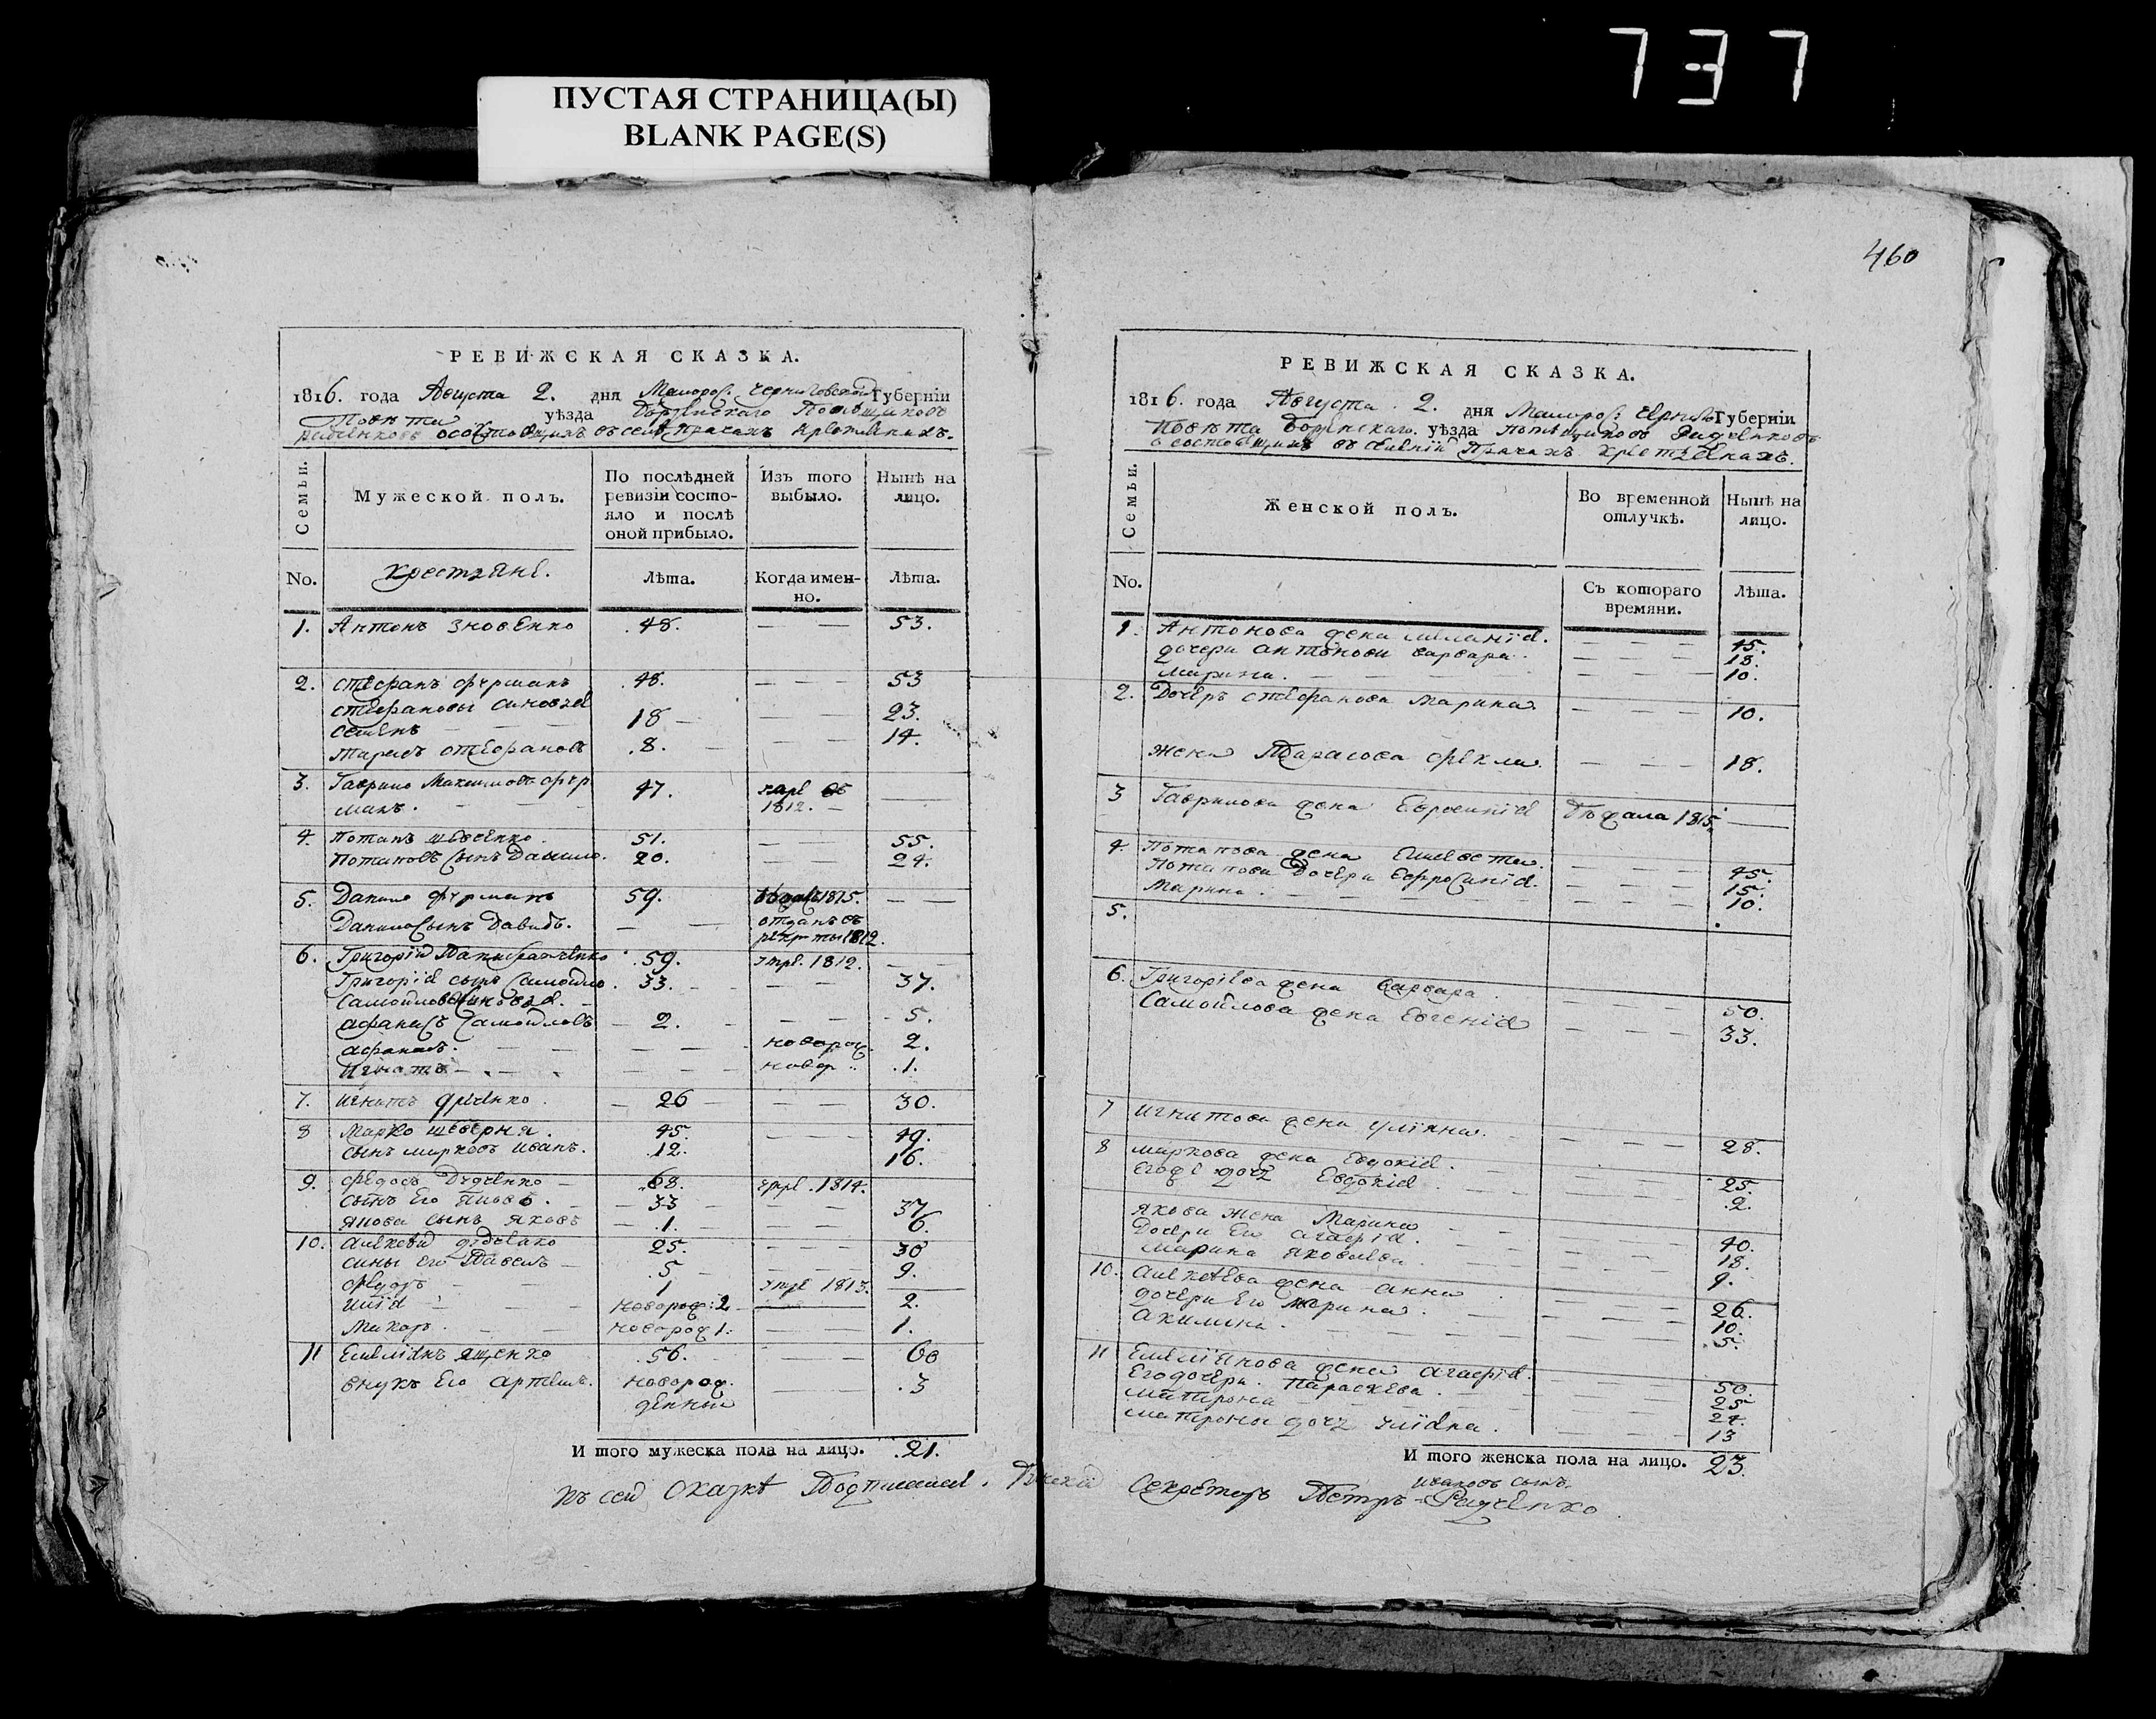 737
ПУСТАЯ СТРАНИЦА(Ы)
BLANK PAGE(S)
РЕВИЖСКАЯ СКАЗКА.
1816. года Августа 2. дня Малорос: Черниговской Губерніи
Повѣта уѣзда Борзенскаго Помѣщиковъ
Радченковъ о состоящихъ въ селѣ Прачахъ крестьянахъ.
Семьи.
Мужеской полъ.
По послѣдней ревизіи состояло и послѣ оной прибыло.
Изъ того выбыло.
Нынѣ на лицо.
No.
крестьяне.
Лѣта.
Когда именно.
Лѣта.
1. Антонъ Зновенко .48. — — 53.
2. Стефанъ фурманъ .48. — — — 53
Стефановы сыновья
Семенъ 18 — 23.
Тарасъ Стефановъ .8. — — 14.
3. Гаврило Максимовъ фур
манъ. 47. 1812. —
4. Потапъ Шевченко 51. — — 55.
Потаповъ сынъ Данило. 20. — — 24.
5. Данило фурманъ 59. 1815. — —
Данилы сынъ Давидъ. — — отданъ въ
рекруты 1812.
6. Григорій 59. умре. 1812. —
Григорія сынъ Самойло. 33. — — 37.
Самойловы сыновья.
Афанасъ Самойловъ — 2. — — 5.
Афанасъ. — — новорож. 2.
Игнатъ — — — новор .1.
7. Игнатъ — 26 — — 30.
8 Марко Шеверня. 45. — — 49.
Сынъ Марковъ Иванъ. .12. 16.
9. Федосъ Дудченко — .68. умре .1814.
Сынъ его Яковъ. — 33 — — 37
Якова сынъ Яковъ — .1. — — 6.
10. Алексей 25. — — — 30
Сыны его Павелъ — .5 — — 9.
Федоръ — 1 умре 1813. —
Илія — — новорож: 2 — 2.
Макаръ. — — новорож 1. — 1.
11 Емеліянъ Ященко .56. — — 60
Внукъ его Артемъ. новорож
денный — .3
И того мужеска пола на лицо. .21.
460
РЕВИЖСКАЯ СКАЗКА.
1816. года Августа 2. дня Малорос: Чернигов Губерніи
Повѣта Борзенскаго уѣзда помѣщиковъ Радченковъ
о состоящихъ въ селеніи Прачахъ крестьянахъ.
Семьи.
Женской полъ.
Во временной отлучкѣ.
Нынѣ на лицо.
No.
Съ котораго времяни.
Лѣта.
1. Антонова жена Меланія. — — — 45.
дочери Антоновы Варвара. — — — 18.
Марина. — — — 10.
2. Дочеръ Стефанова Марина — — — 10.
жена Тарасова Фекла. — — — 18.
3 Гаврилова жена Евросинія бѣжала 1815. —
4. Потапова жена — — — 45.
Потаповы дочери Евфросинія. — — — 15.
Марина. — — — 10.
5.
6. Григоріева жена Варвара. — — — 50.
Самойлова жена Евгенія — — — 33.
7 Игнатова жена Уліяна. — — — 28.
8 Маркова жена Евдокія. — — — 25.
Его же дочъ Евдокія — — — .2.
Якова жена Марина — — — 40.
Дочери его Агафія. — — — 18.
Марина Яковлева. — — — 9.
10. Алексеева жена Анна — — — 26.
дочери его Марина. — — — 10.
Акилина. — — — .5.
11 Емеліянова жена Агафія. — — — 50.
Его дочери Параскева. — — — 25
Матрона — — — 24.
Матроны дочъ Уліяна. — — — 13
И того женска пола на лицо. 23.
Къ сей сказкѣ Подписался. Секретарь Петръ Ивановъ сынъ Радченко